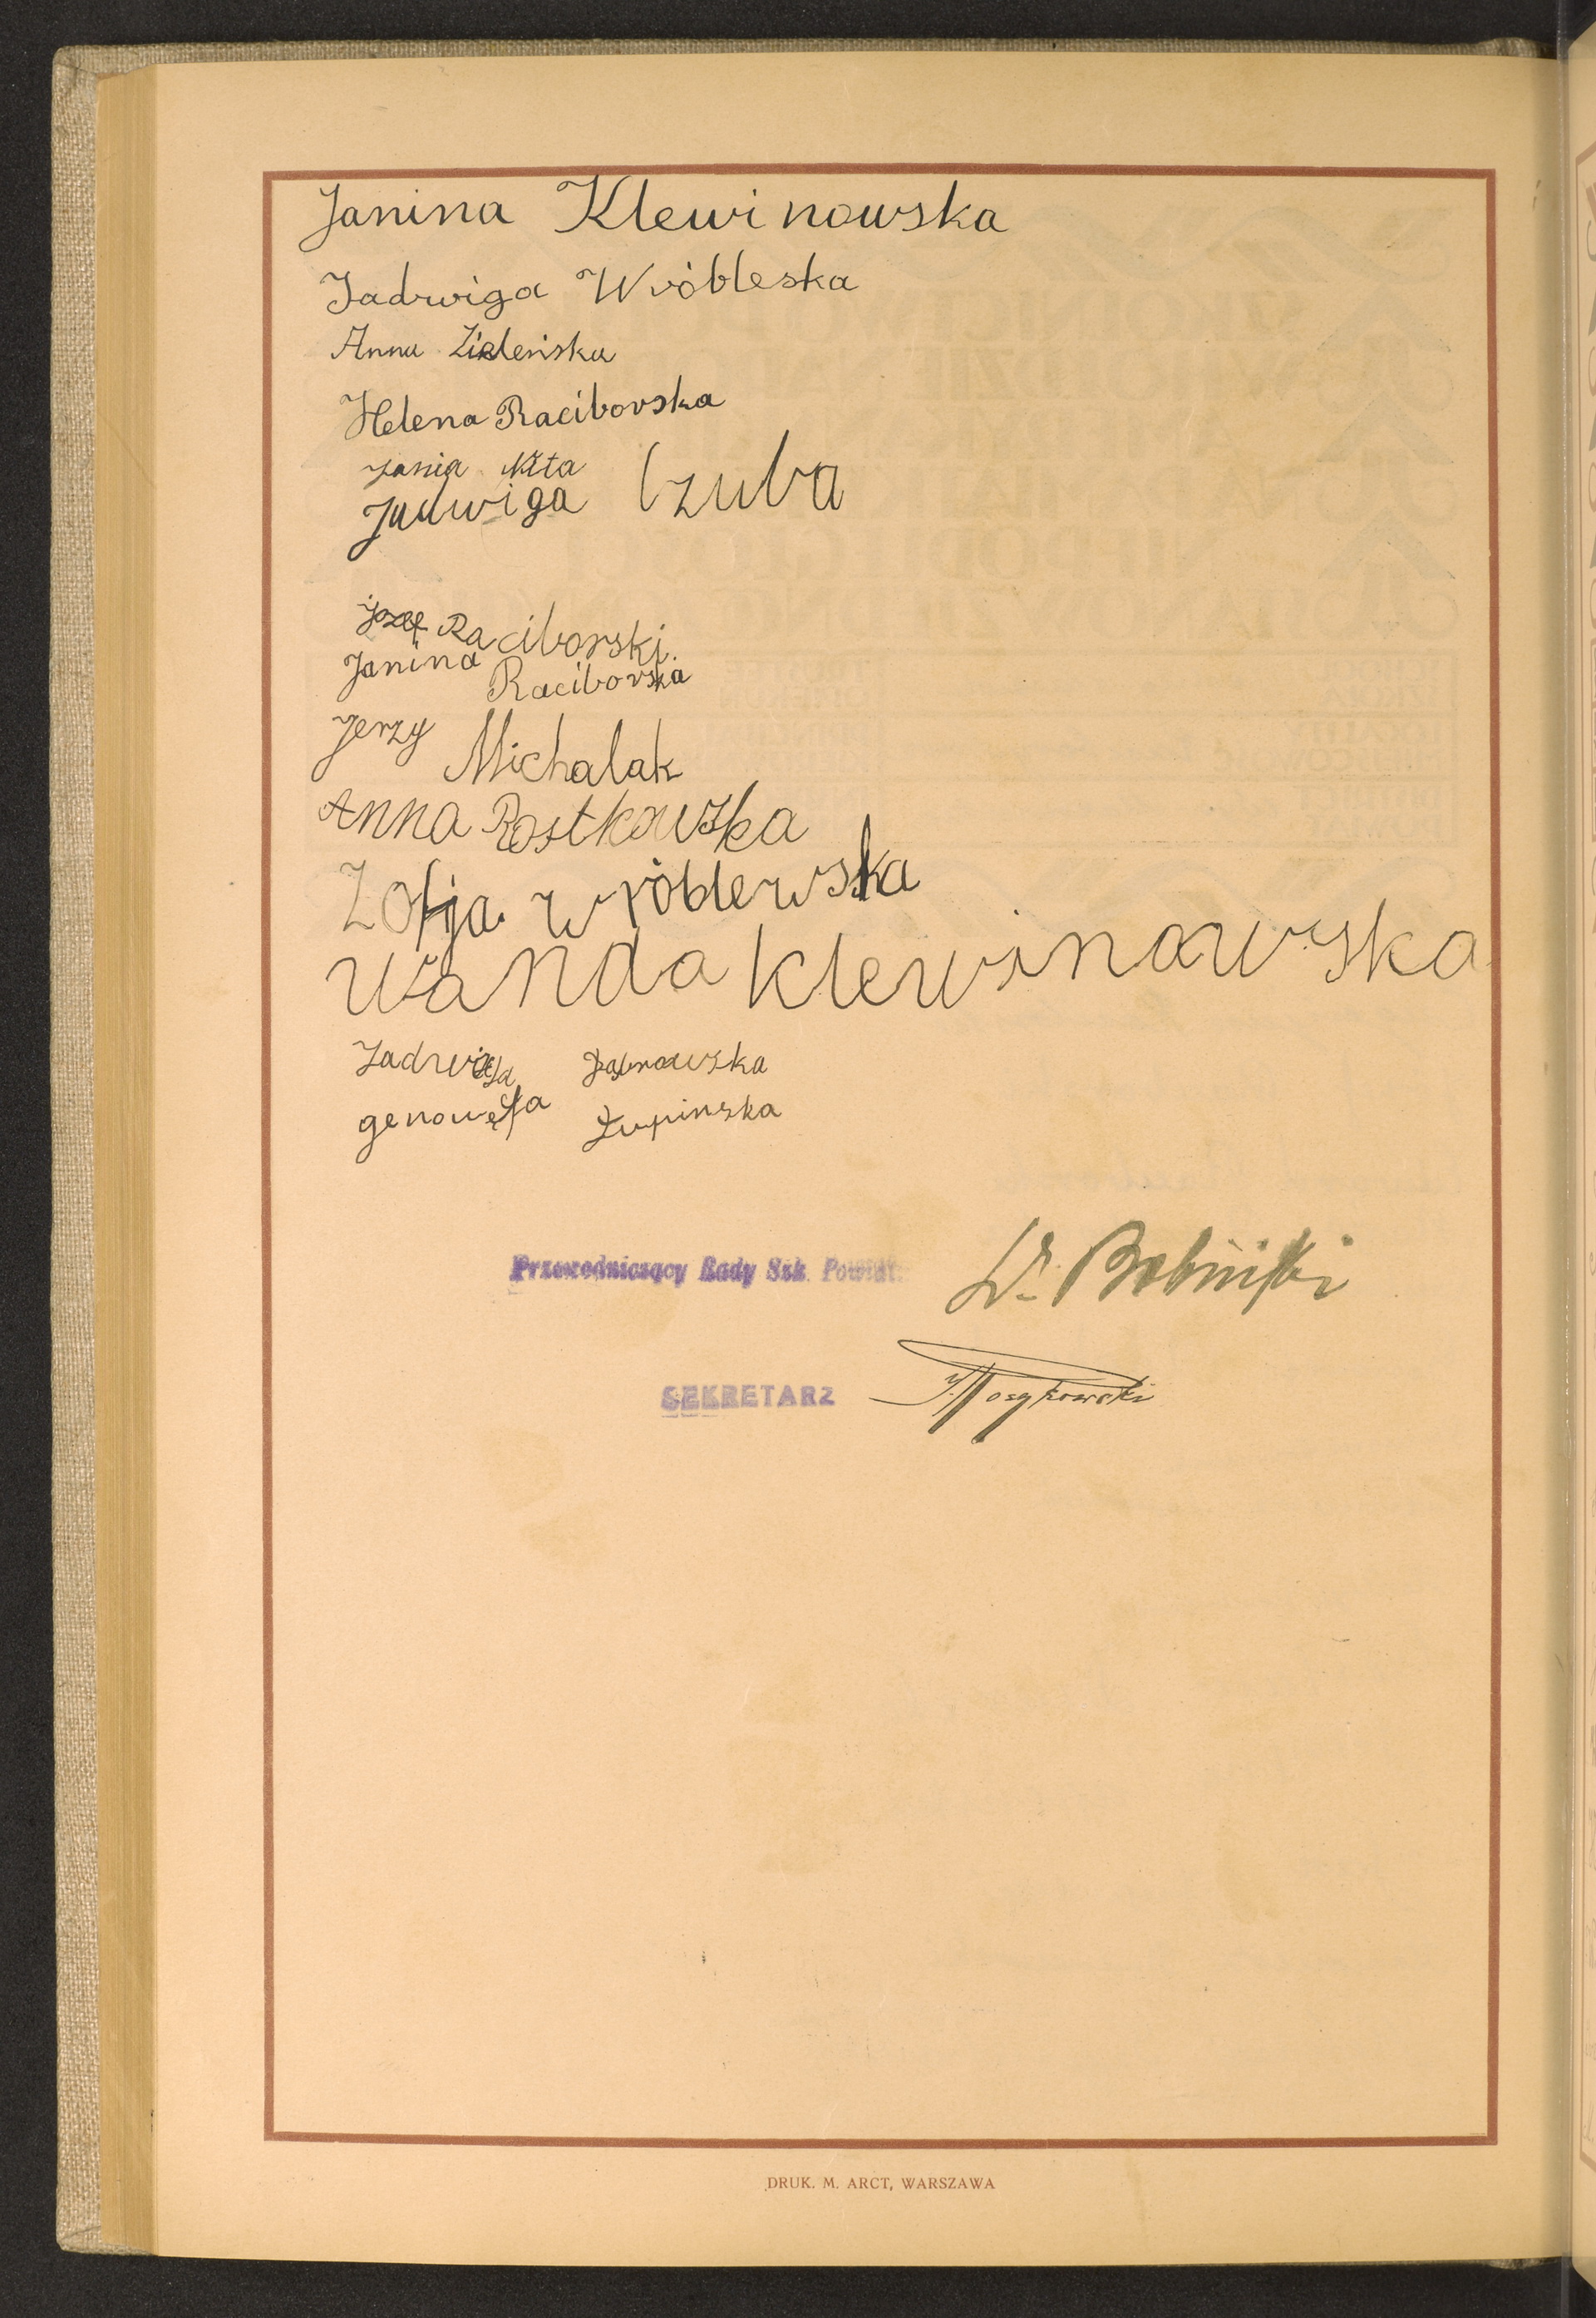 Janina Klewinowska
Jadwiga Wróbleska
Anna Zieleńska
Helena Raciborska
Nita
Jadwiga Czuba
Józef Raciborski.
Janina Raciborska
Jerzy Michalak
Anna Rostkowska
Zofja wróblewska
Wanda klewinowska
Jadwiga Dąbrowska
genowefa Łupinska
Przewodniczący Rady Szk. Powiat.
Dr. Babiński
SEKRETARZ
DRUK. M. ARCT, WARSZAWA